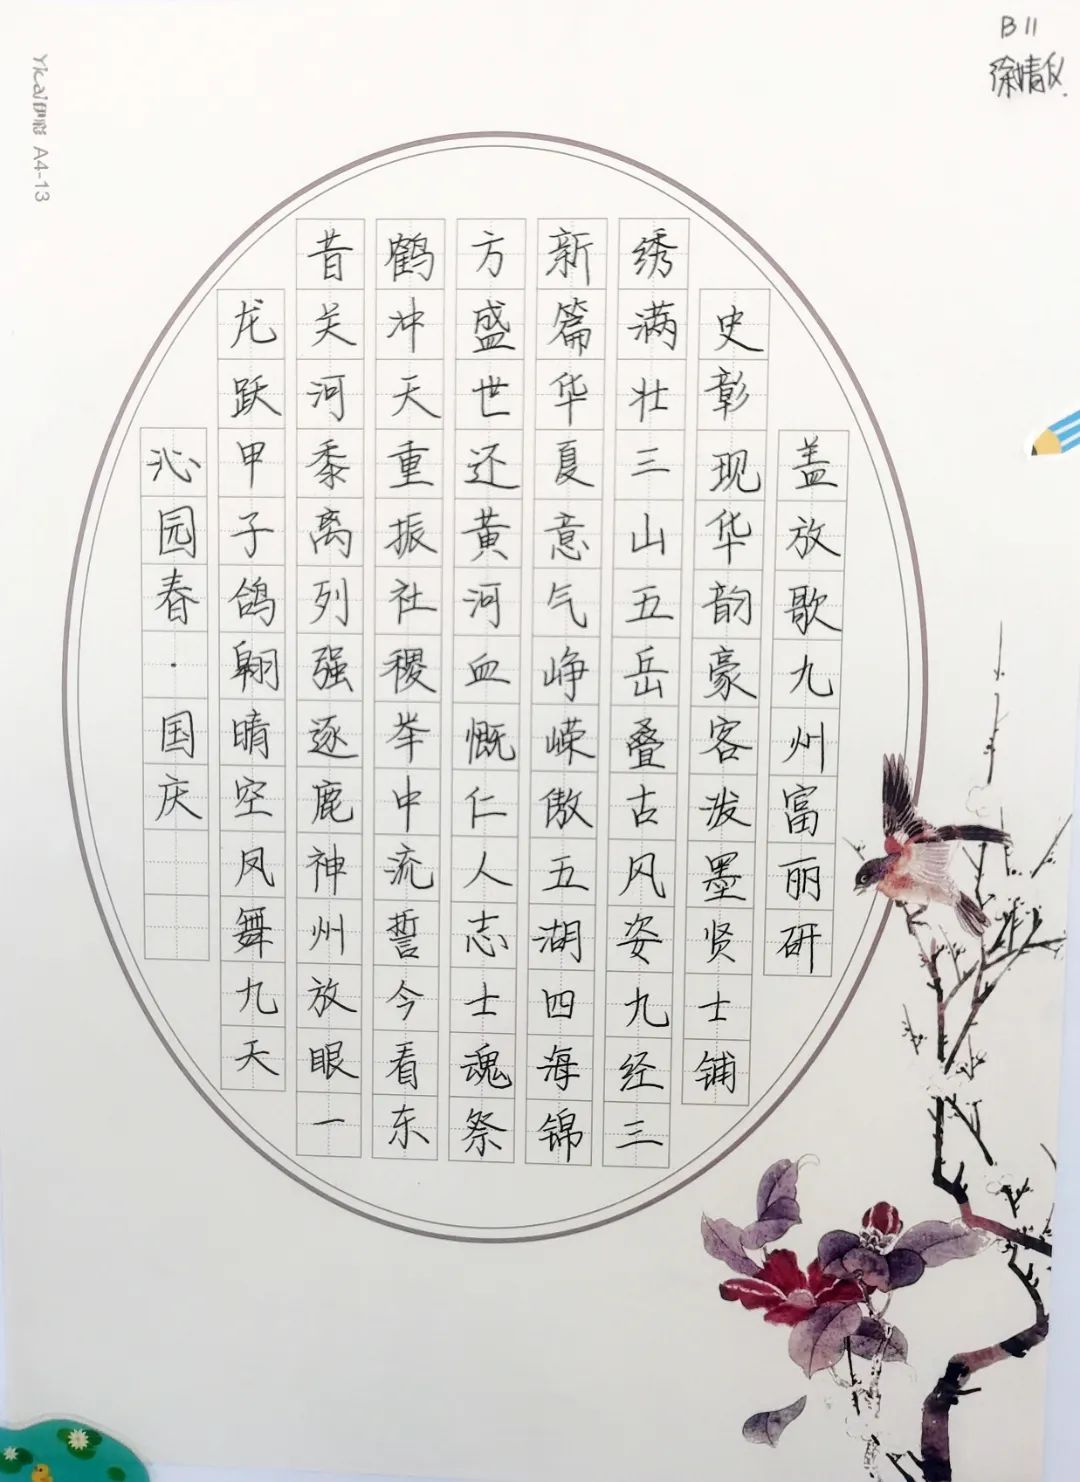 B11
徐婧仪
A4-13
沁园春·国庆
龙跃甲子鸽翱晴空凤舞九天
昔关河黍离列强逐鹿神州放眼一
鹤冲天重振社稷举中流誓今看东
方盛世还黄河血慨仁人志士魂祭
新篇华夏意气峥嵘傲五湖四海锦
绣满壮三山五岳叠古风姿九经三
史彰现华韵豪客泼墨贤士铺
盖放歌九州富丽研